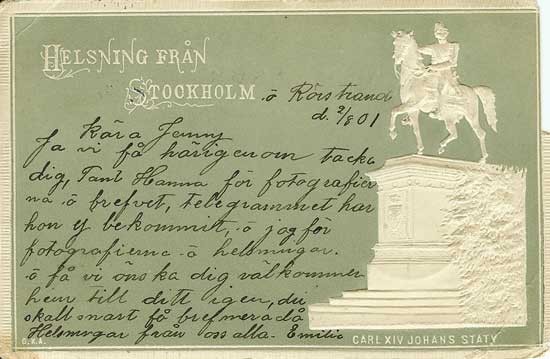 HELSNING FRÅN
STOCKHOLM
o Rörstrand
d. 2/8 01
Kära Jenny
Ja vi få härigenom tacka
dig, Tant Hanna för fotografier
na o brefvet, telegrammet har
hon ej bekommit, o jag för
fotografierna o helsningar.
o få vi önska dig välkommen
hem till ditt igen, du
skall snart få bref mera då
Helsningar från oss alla. Emilie
G.K.A.
CARL XIV JOHANS STATY